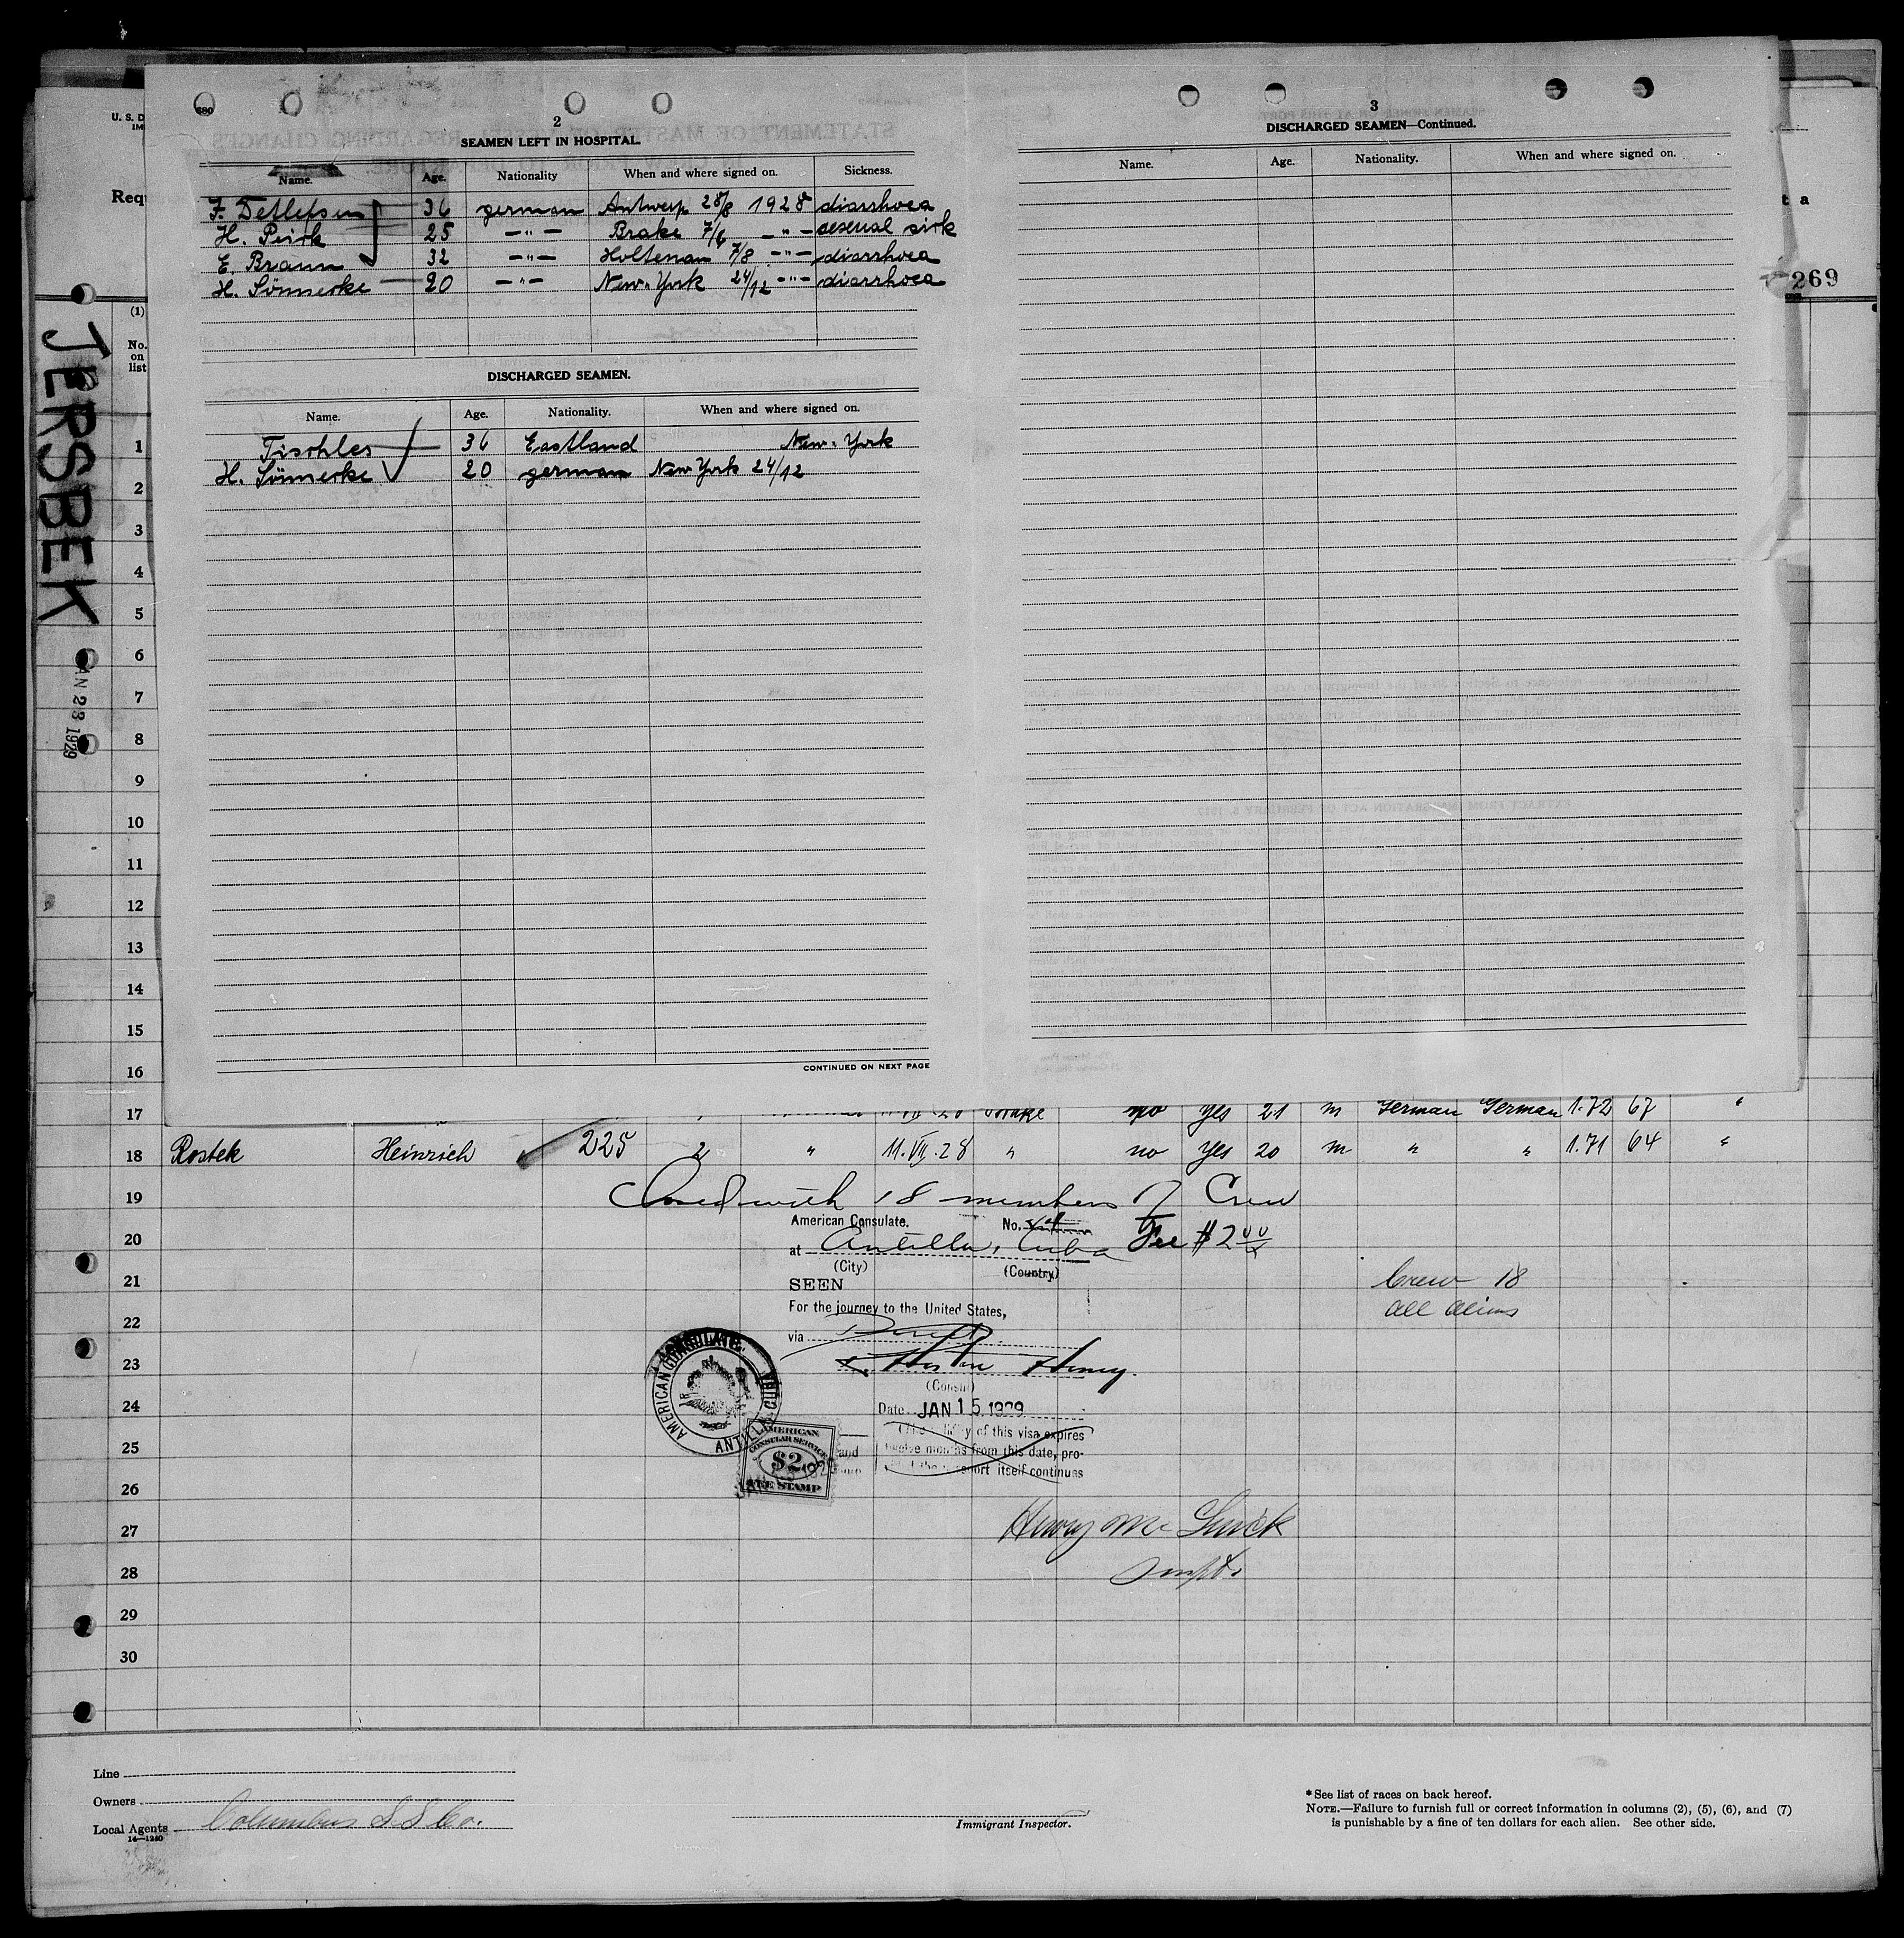 680
2
SEAMEN LEFT IN HOSPITAL.
Name. Age. Nationality When and where signed on. Sickness.
F. Detlefsen 36 german Antwerp 28/8 1928 diarrhoea
H. Peirk 25 —"— Brake 7/6 —"— sick
E. Braun 32 —"— Holtenau 7/8 —"— diarrhoea
H. Sönnecke 20 —"— New-York 24/12 —"— diarrhoea
DISCHARGED SEAMEN.
Name. Age. Nationality. When and where signed on.
Tischles 36 Eastland New-York
H. Sönnecke 20 german New York 24/12
CONTINUED ON NEXT PAGE
3
DISCHARGED SEAMEN—Continued.
Name. Age. Nationality. When and where signed on.
U. S. D
IM
Requ
t a
269
JERSBEK
AN 23 1929
(1)
No.
on
list
1
2
3
4
5
6
7
8
9
10
11
12
13
14
15
16
17 Brake no yes 21 m German German 1.72 67 "
18 Rostek Heinrich 225 2 " 11.VII.28 " no yes 20 m " " 1.71 64 "
19 Closed with 18 members of Crew
American Consulate. No.
20 at Antilla, Cuba Fee $2 00
(City) (Country)
21 SEEN Crew 18
all aliens
For the journey to the United States,
22 via Direct
23
(Consul)
24 Date JAN 15 1929
of this visa expires
25 twelve months from this date, pro-
itself continues
AMERICAN CONSULATE.
ANTILLA CUBA
AMERICAN
CONSULAR SERVICE
$2
FEE STAMP
and
26
27 Henry
28
29
30
Line
Owners
Local Agents Columbus S S Co.
14—1240
Immigrant Inspector.
* See list of races on back hereof.
NOTE.—Failure to furnish full or correct information in columns (2), (5), (6), and (7)
is punishable by a fine of ten dollars for each alien. See other side.